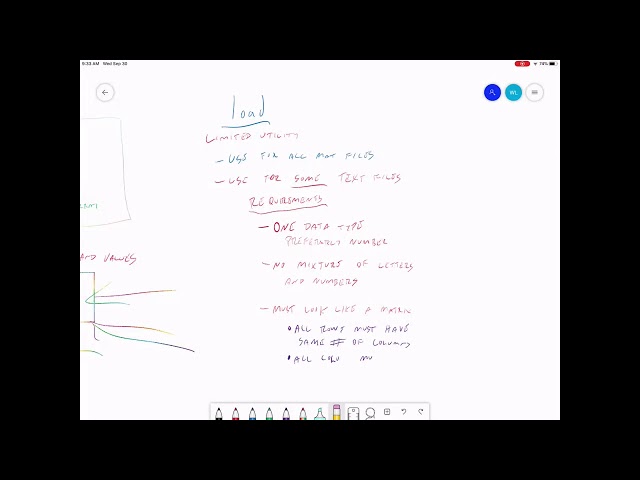 9:33 AM Wed Sep 30
74%
WL
load
LIMITED UTILITY
- USE FOR ALL MAT FILES
- USE FOR SOME TEXT FILES
REQUIREMENTS
- ONE DATA TYPE
PREFERABLY NUMBER
- NO MIXTURE OF LETTERS
AND NUMBERS
- MUST LOOK LIKE A MATRIX
• ALL ROWS MUST HAVE
SAME # OF COLUMNS
• ALL COLU MU
AND VALUES